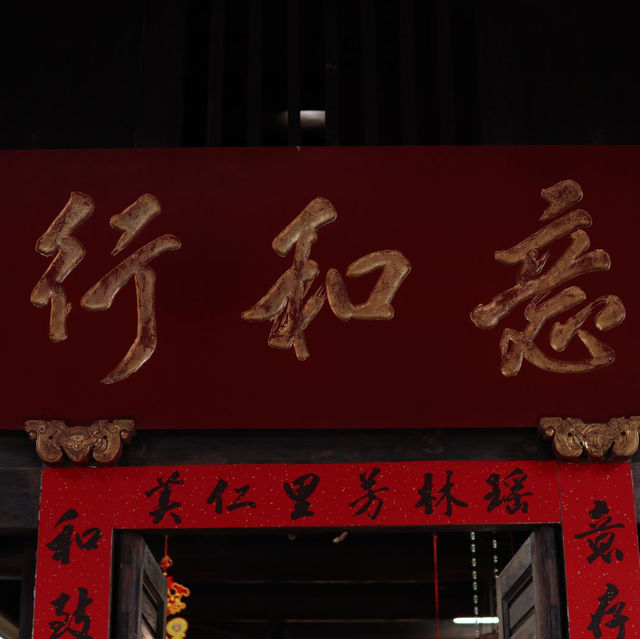 意和行
瑶林芳里仁美
意存
和致